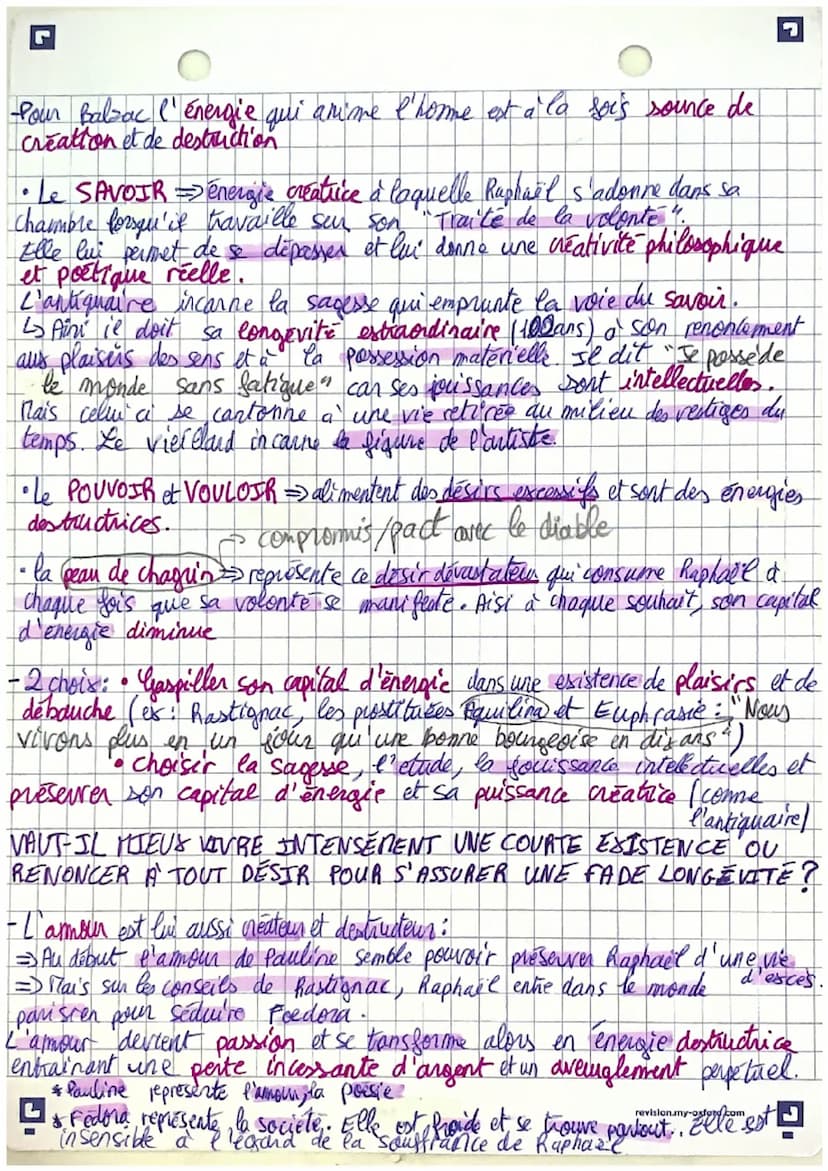 -Pour Balzac l'énergie qui anime l'home est à la fois source de
création et de destruction
• Le SAVOIR ⇒ énergie créatrice à laquelle Raphaël s'adonne dans sa
chambre lorsqu'il travaille sur son "Traité de la volonté".
Elle lui permet de se dépasser et lui donne une créativité philosophique
et poétique réelle.
L'antiquaire incarne la sagesse qui emprunte la voie du savoir.
↳ Aini il doit sa longévité extraordinaire (100ans) à son renoncement
aux plaisirs des sens et à la possession matérielle. Il dit "Je possède
le monde sans fatigue" car ses jouissances sont intellectuelles.
Mais celui ci se cantonne à une vie retirée au milieu des vestiges du
temps. Le vieillard incarne la figure de l'artiste.
• Le POUVOIR et VOULOIR ⇒ alimentent des désirs excessifs et sont des énergies
destructrices.
→ compromis/pact avec le diable
• la peau de chagrin ⇒ représente ce désir dévastateur qui consume Raphaël à
chaque fois que sa volonté se manifeste. Aisi à chaque souhait, son capital
d'énergie diminue
- 2 choix: • Gaspiller son capital d'énergie dans une existence de plaisirs et de
débauche (ex: Rastignac, les prostituées Aquilina et Euphrasie : "Nous
vivons plus en un jour qu'une bonne bourgeoise en dix ans")
• Choisir la sagesse, l'étude, la jouissance intellectuelles et
préserver son capital d'énergie et sa puissance créatrice (come
l'antiquaire)
VAUT-IL MIEUX VIVRE INTENSÉMENT UNE COURTE EXISTENCE OU
RENONCER À TOUT DÉSIR POUR S'ASSURER UNE FADE LONGÉVITÉ ?
- L'amour est lui aussi créateur et destructeur :
⇒ Au début l'amour de Pauline semble pouvoir préserver Raphaël d'une vie
d'excès.
⇒ Mais sur les conseils de Rastignac, Raphaël entre dans le monde
parisien pour séduire Foedora.
L'amour devient passion et se transforme alors en énergie destructrice
entraînant une perte incessante d'argent et un aveuglement perpétuel.
* Pauline représente l'amour, la poésie
* Fédora représente la société. Elle est froide et se trouve partout. Elle est
insensible à l'égard de la souffrance de Raphaël
revision.my-oxford.com